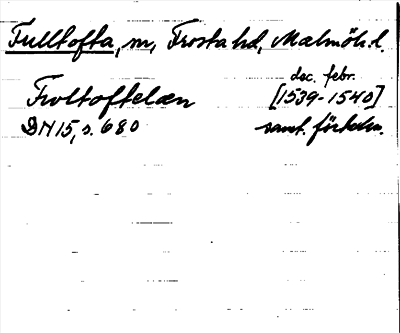 Fulltofta, sn, Frosta hd, Malmöh. l.
dec. febr.
Froltoftelæn [1539-1540]
DN 15, s. 680 samt. förteckn.